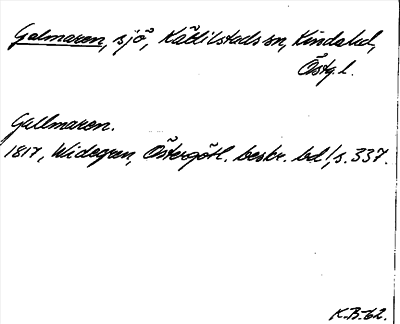 Galmaren, sjö, Kättilstads sn, Kinda hd,
Östg.l.
Gallmaren.
1817, Widegren, Östergötl. beskr. bd 1, s. 337.
K.B.-62.